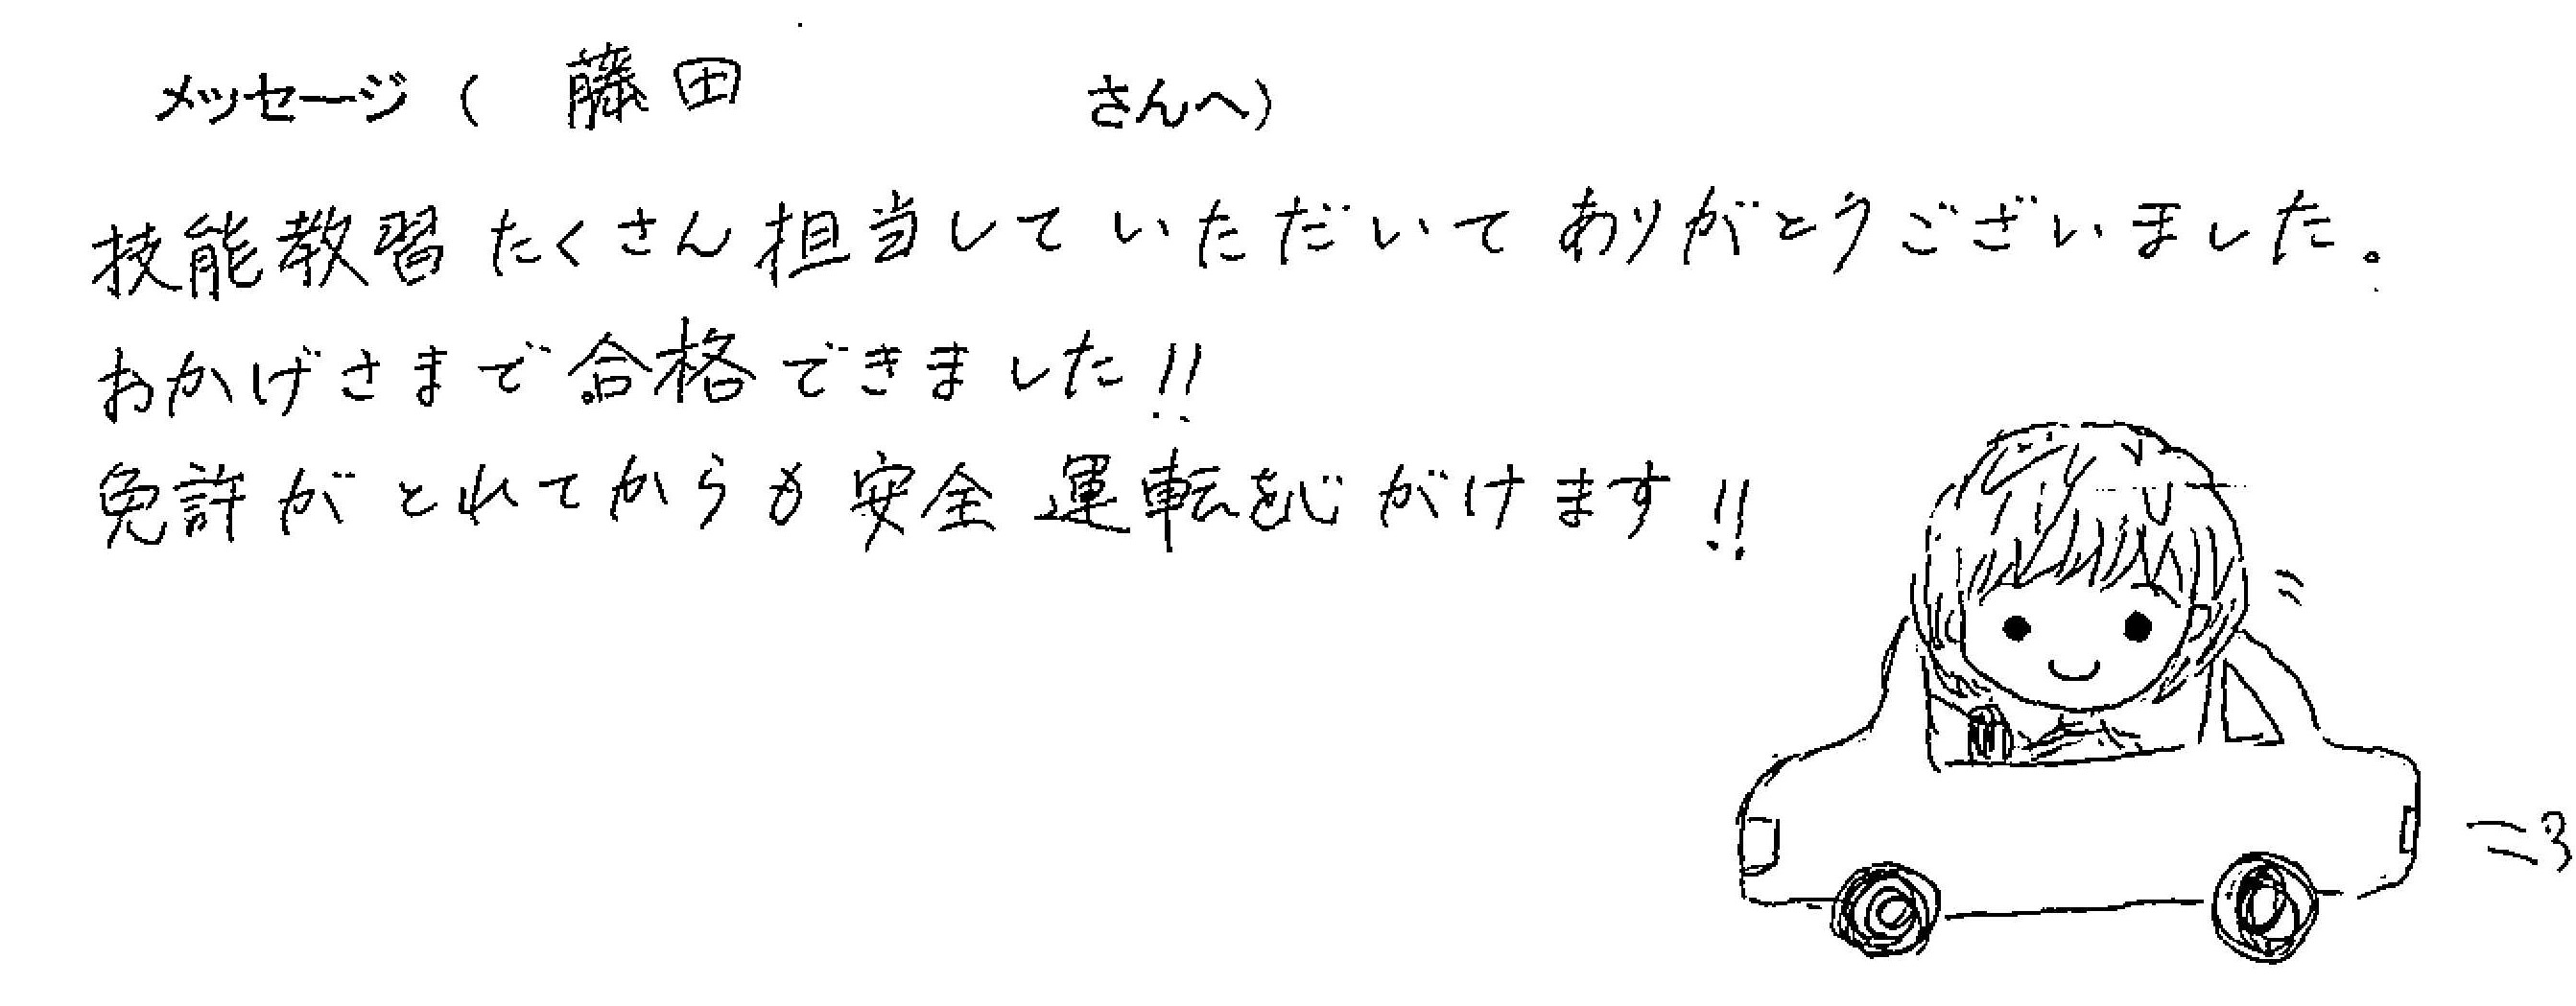 メッセージ（ 藤田 さんへ）
技能教習たくさん担当していただいてありがとうございました。
おかげさまで合格できました!!
免許がとれてからも安全運転を心がけます!!